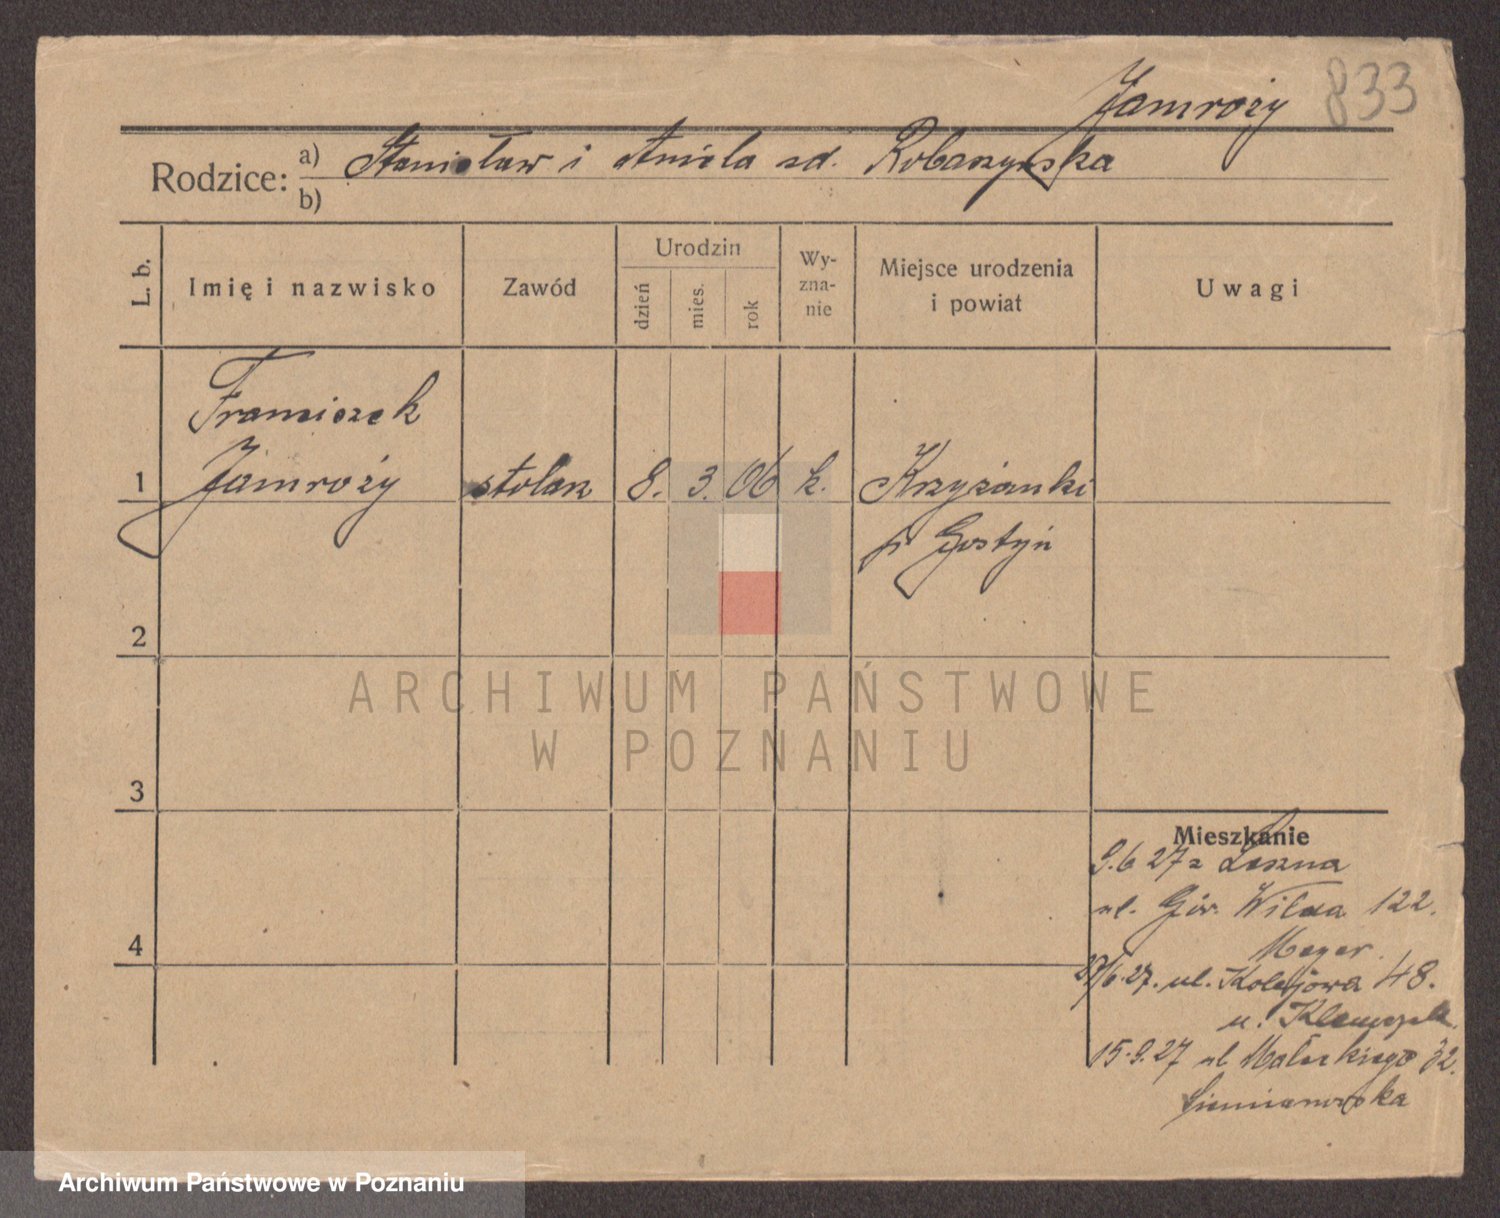 Jamroży 833
Rodzice: a) Stanisław i Aniela zd. Robaszyńska
b)
L. b. Imię i nazwisko Zawód Urodzin dzień mies. rok Wy-zna-nie Miejsce urodzenia i powiat Uwagi
Franciszek
1 Jamroży stolarz 8. 3. 06 k. Krzyżanki
p. Gostyń
2
3
Mieszkanie
9.6 27 z Leszna
ul. Gór. Wilda 122.
4 Meyer.
27/6.27. ul. Kolejowa 48.
u.
15.9.27 ul Małeckiego 32.
Siemianowska
ARCHIWUM PAŃSTWOWE
W POZNANIU
Archiwum Państwowe w Poznaniu